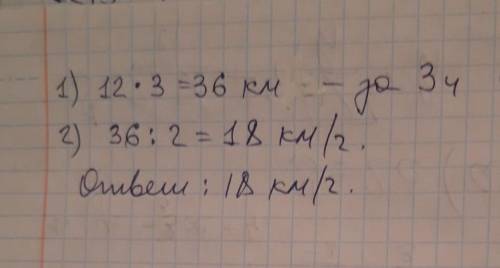 1) 12 · 3 = 36 км – за 3 ч
2) 36 : 2 = 18 км/ч.
Ответ : 18 км/ч.